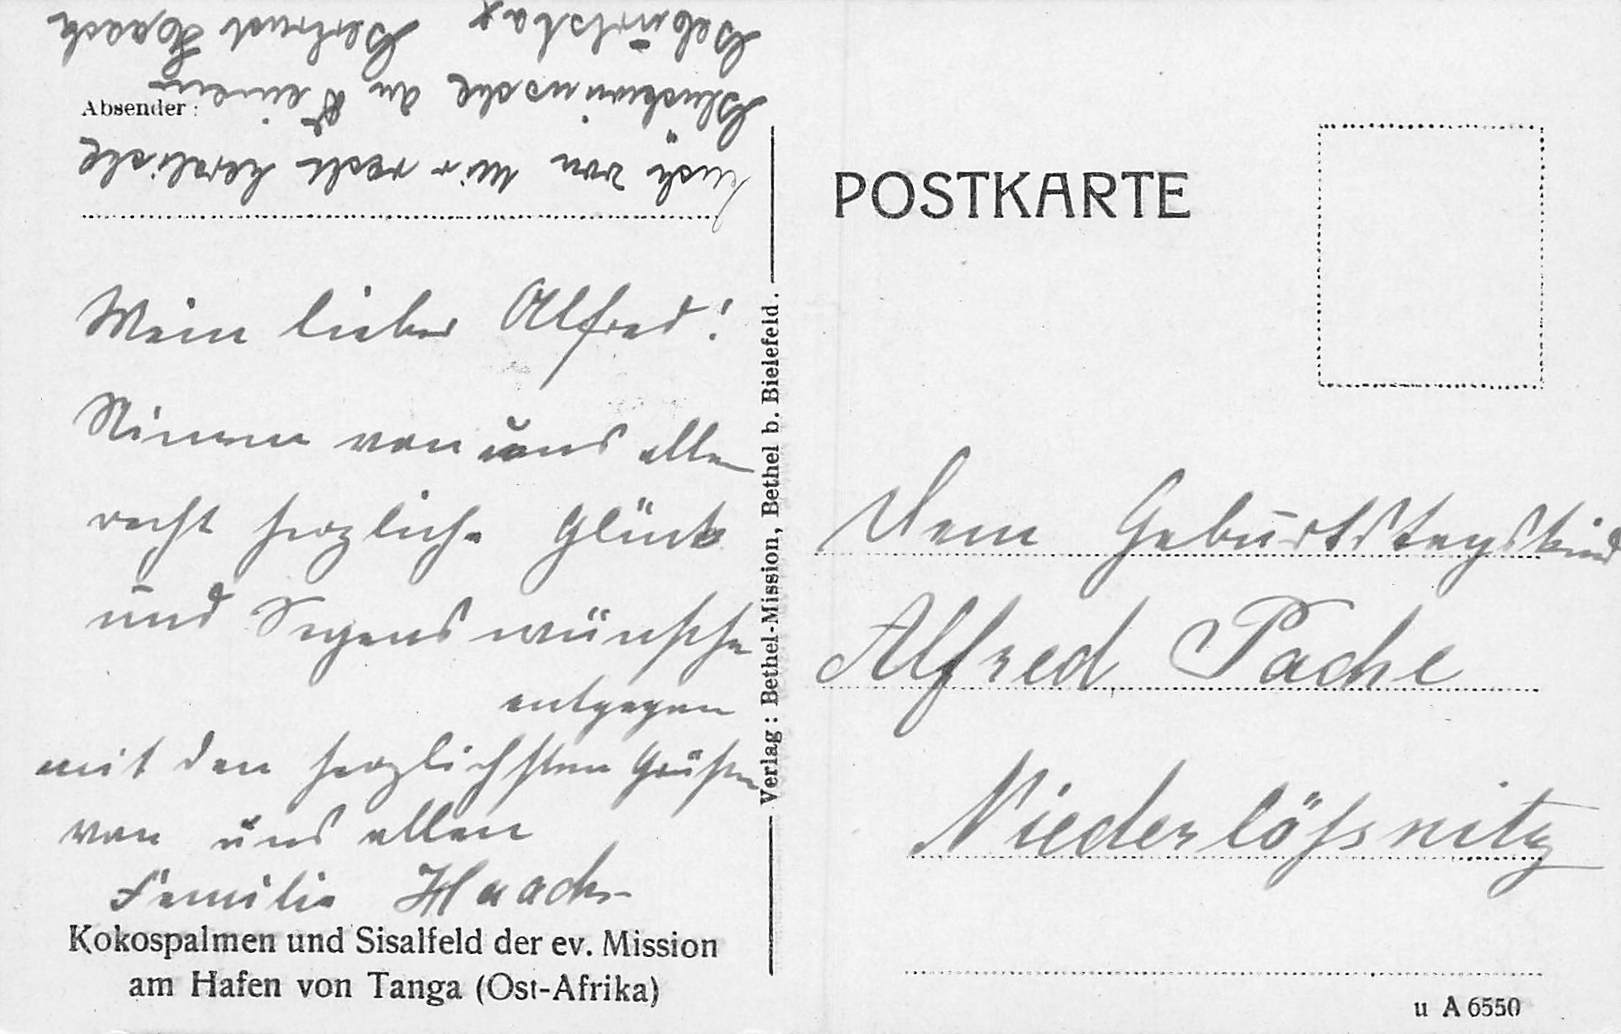 Absender:
Mein lieber Alfred!
Nimm von uns allen
recht herzliche Glück
und Segenswünsche
entgegen
mit den herzlichsten Grüßen
von uns allen
Familie Haack
Auch von mir recht herzliche
Glückwünsche zu Deinem
Geburtstag Gertrud Haack
Kokospalmen und Sisalfeld der ev. Mission
am Hafen von Tanga (Ost-Afrika)
Verlag: Bethel-Mission, Bethel b. Bielefeld.
POSTKARTE
Dem Geburtstagskind
Alfred Pache
Niederlößnitz
u A 6550